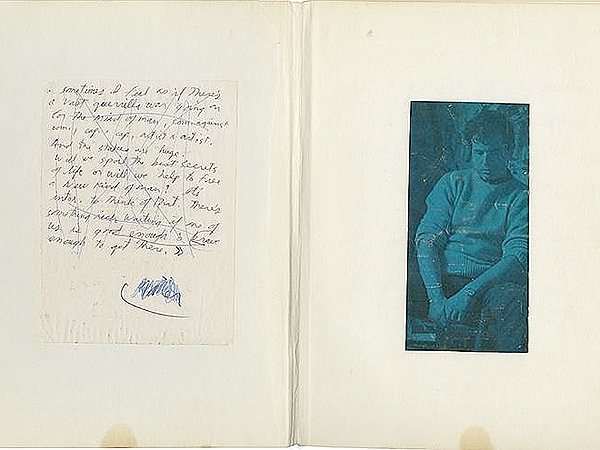 . sometimes I feel as if there's
a vast guerrilla war going on
for the mind of man, com. against
com., cap. x cap, artist x artist.
And the stakes are huge.
Will we spoil the best secrets
of life or will we help to free
a new kind of man? It's
intox. to think of that. There's
something rich waiting if one of
us is good enough & brave
enough to get there. »